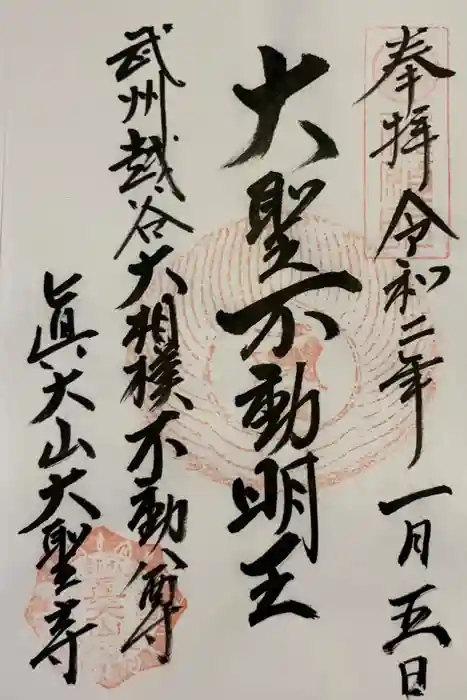 奉拝 令和二年 一月五日
大聖不動明王
武州越谷大相模不動尊
眞大山大聖寺